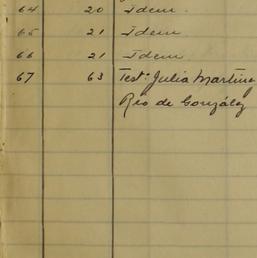 64 20 Idem.
65 21 Idem
66 21 Idem
67 63 Test. Julia Martínez
Rio de González